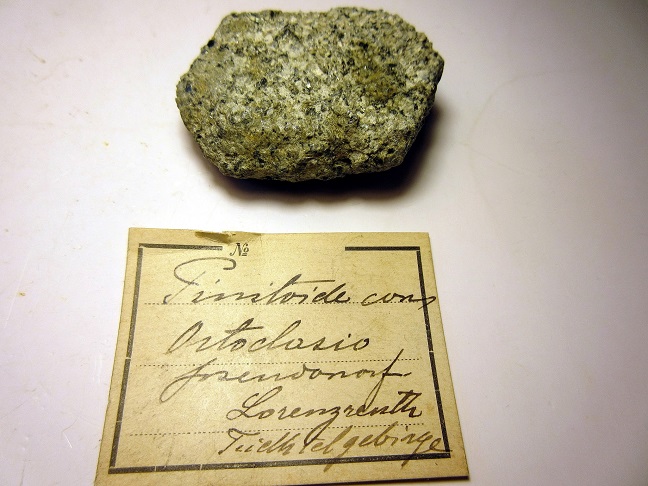 №
Pinitoide con
Ortoclasio
Lorenzreuth
Fichtelgebirge